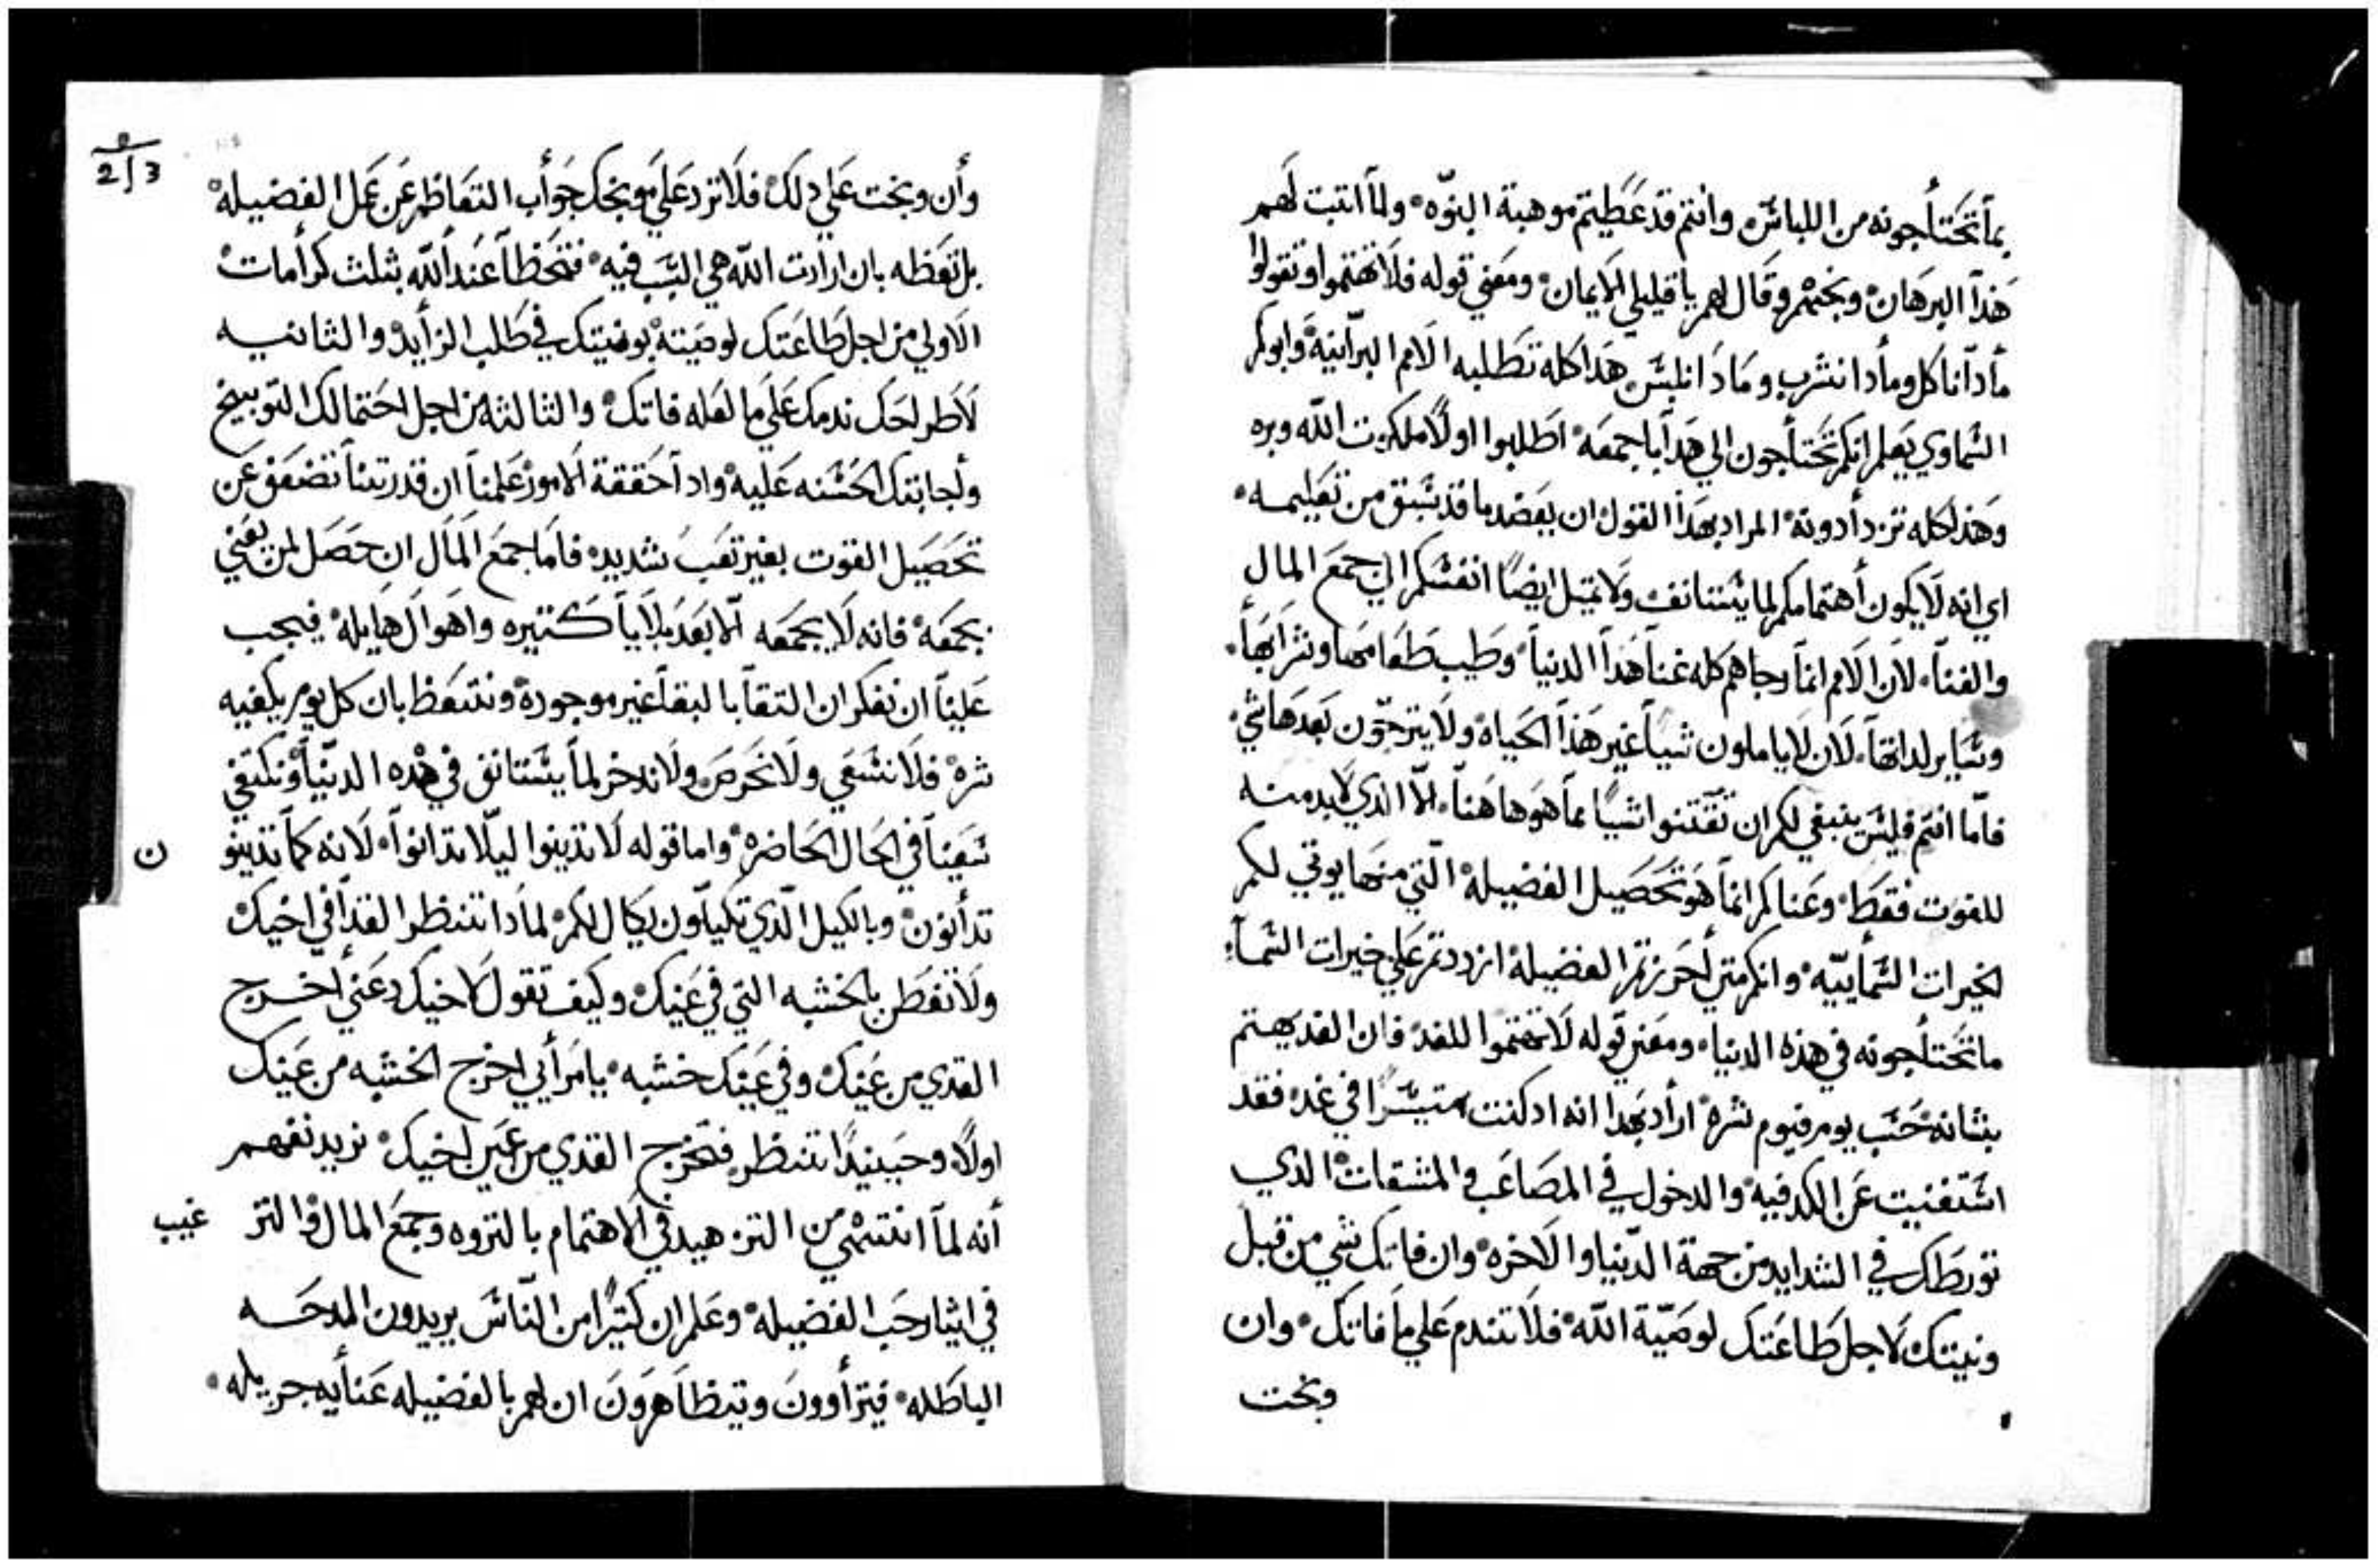 بما تحتاجونه من اللباس وانتم قد عطيتم موهبة البنوّه ولما اتبت لهم
هذا البرهان وبخهم وقال لهم يا قليلي الايمان ومعني قوله فلا تهتموا وتقولوا
مادا ناكل ومادا نشرب ومادا نلبس هدا كله تطلبه الامم البرّانية وابوكم
السماوي يعلم انكم تحتاجون الي هدا باجمعه اطلبوا اولاً ملكوت الله وبره
وهذا كله تزدادونه المراد بهذا القول ان يعضد ما قد سبق من تعليمه
اي انه لا يكون اهتمامكم لما يستانف ولا تميل ايضاً انفسكم الي جمع المال
والغنا لان الامم انما رجاهم كله غنا هدا الدنيا وطيب طعامها وشرابها
وساير لداتها لان لا ياملون شياً غير هذا الحياه ولا يترجّون بعدها شي
فامّا انتم فليس ينبغي لكم ان تقتنوا شياً مما هو هاهنا الّا الدي لا بد منه
للقوت فقط وعناكم انما هو تحصيل الفضيلة الّتي منها يوتي لكم
الخيرات السماييّه وانكم متي احرزتم الفضيلة ازددتم علي خيرات السماء
ما تحتاجونه في هذه الدنيا ومعني قوله لا تهتموا للغد فان الغد يهتم
بشانه حسب يوم فيوم شره اراد بهدا انه اد كنت متيسّراً في غد فقد
استغنيت عن الكد فيه والدخول في المصاعب والمشقات الدي
تورطك في الشدايد من جهة الدّنيا والاخره وان فاتك شي من قبل
ونيتك لاجل طاعتك لوصيّة الله فلا تندم علي ما فاتك وان
وبخت
2/3
وأن وبخت علي دلك فلا ترد علي موبخك جواب التعاظم عن عمل الفضيله
بل تعظه بان ارادت الله هي السبب فيه فتحظا عند الله بثلث كرامات
الاولي من اجل طاعتك لوصيته بونيتك في طلب الزايد والثانيه
لاطراحك ندمك علي ما لعله فاتك والثالثه من اجل احتمالك التوبيخ
واجابتك الحسنه عليه واد احققة الامور علمنا ان قدرتنا تضعف عن
تحصيل القوت بغير تعب شديد فاما جمع المال ان حصل لمن يعني
بجمعه فانه لا يجمعه الّا بعد بلايا كتيره واهوال هايله فيجب
علينا ان نفكر ان التقا بالبقا غير موجودة ونتعظ بان كل يوم يكفيه
شره فلا نسعي ولا نحرص ولا ندخر لما يستانق في هده الدنيا ونكتفي
سعينا في الحال الحاضره واما قوله لا تدينوا ليلّا تدانوا لانه كما تدينو
ن
تدانون وبالكيل الّدي تكيلّون يكال لكم لمادا تنظر القدا في اخيك
ولا تفطن بالخشبه التي في عينك وكيف تقول لاخيك دعني اخرج
القدي من عينك وفي عينك خشبه يا مرأيي اخرج الخشبه من عينك
اولاً وحينيدًا تنظر فتخرج القدي من عين اخيك نريد نفهم
أنه لما انتهي من التزهيد في الاهتمام بالتروه وجمع المال والتر
غيب
في ايثار حب الفضيله وعلم ان كتيراً من النّاس يريدون المدحه
الباطله فيتراوون ويتظاهرون ان لهم بالفضيله عنايه جزيله